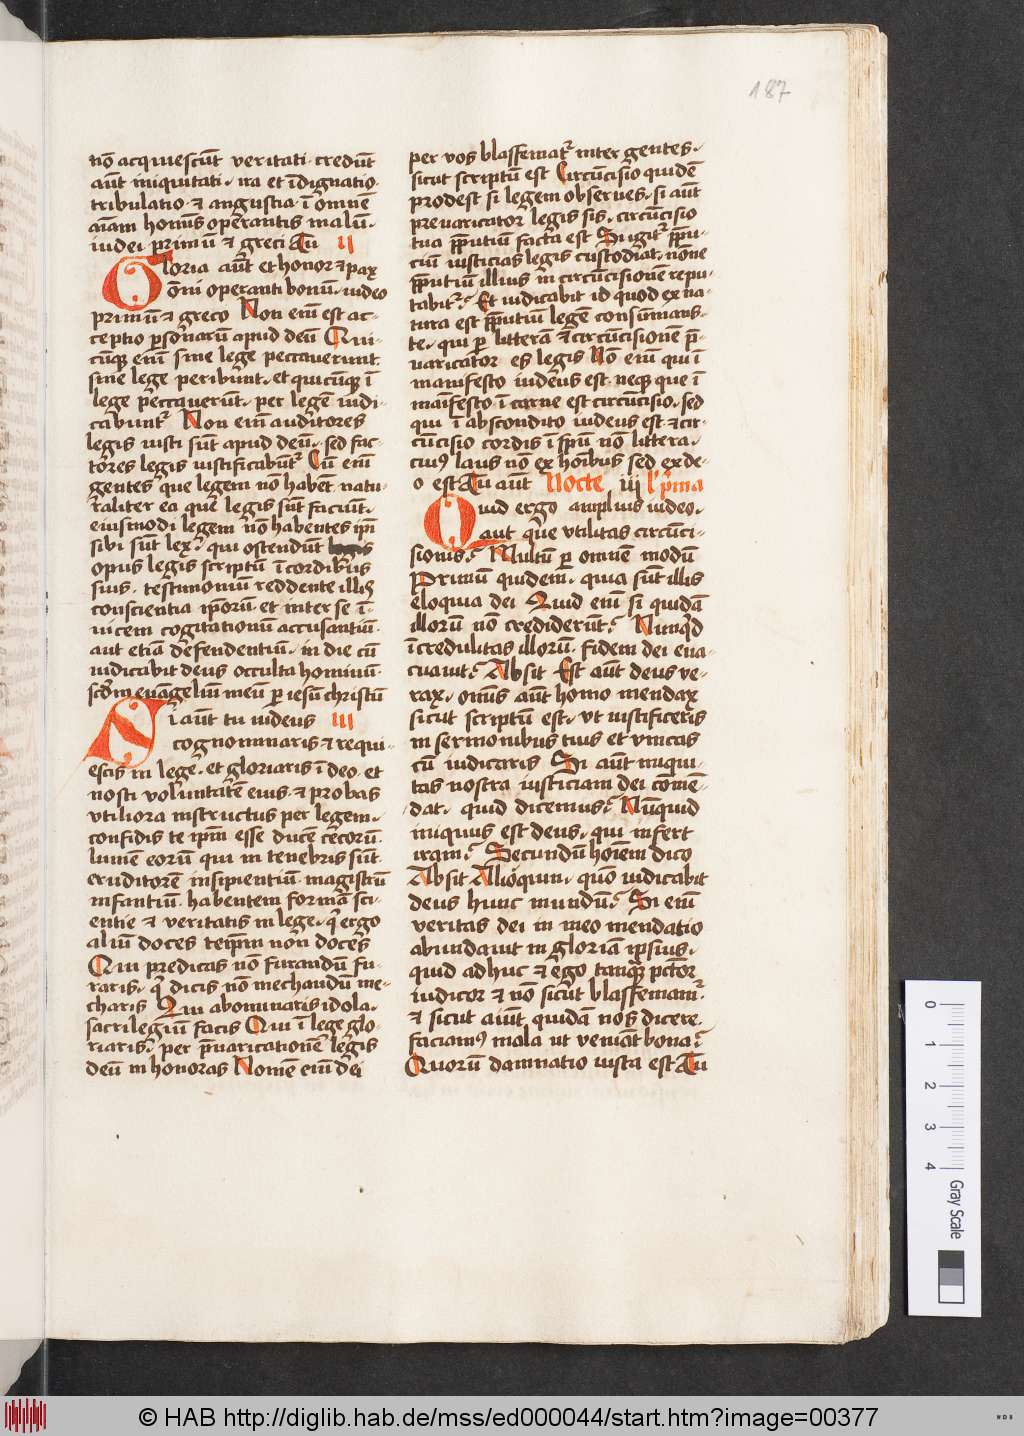 187
nō acquiescūt veritati · credūt
aūt iniquitati · ira et īdignatio
tribulatio · ⁊ angustia · ī omnē
aīam homīs operantis malū ·
iudei primū ⁊ greci Tu II
Gloria aūt et honor ⁊ pax
ōni operanti bonū · iudeo
primū ⁊ greco Non enī est ac-
ceptio ꝑsonarū apud deū Qui-
cūqꝫ enī sine lege peccaverunt
sine lege peribūnt · et quicūqꝫ ī
lege peccaverūt · per legē iudi-
cabuntᷣ Non enī auditores
legis iusti sūt apud deū · sed fac-
tores legis iustificabūtᷣ Cū enī
gentes que legem nō habēt natu-
raliter ea que legis sūt faciūt ·
eiusmodi legem nō habentes ip̄i
sibi sūt lex · qui ostendūt
opus legis scriptū ī cordibus
suis · testimoniū reddente illis
conscientia ip̄orū · et inter se ī-
uicem cogitationū accusantiū ·
aut etiā defendentiū · in die cū
iudicabit deus occulta hominū ·
scd̄m euāgeliū meū ꝑ iesū christū
Si aūt tu iudeus III
cognominaris ⁊ requi-
escis in lege · et gloriaris ī deo · et
nosti voluntatē eius · ⁊ probas
vtiliora instructus per legem ·
confidis te ip̄m esse ducē cecorū
lumē eorū qui in tenebris sūt
eruditorē insipientiū · magistrū
infantiū · habentem formā sci-
entie ⁊ veritatis in lege · qͥ ergo
aliū doces teip̄m non doces
Qui predicas nō furandū fu-
raris · qͥ dicis nō mechandū me-
charis Qui abominaris idola ·
sacrilegiū facis Qui ī lege glo-
riaris · per p̄uaricationē legis
deū inhonoras Nomē enī dei
per vos blasfematᷣ inter gentes ·
sicut scriptū est Circūcisio quidē
prodest si legem obserues · si aūt
preuaricator legis sis · circūcisio
tua p̄putiū facta est Si igitᷣ p̄pu-
ciū iusticias legis custodiat · nōne
p̄putiū illius in circūcisionē repu-
tabitᷣ Et iudicabit id quod ex na-
tura est p̄putiū legē consūmans ·
te · qui ꝑ litterā ⁊ circūcisionē p̄-
uaricator es legis Nō enī qui ī
manifesto iudeus est · neqꝫ que ī
maīfesto ī carne est circūcisio · sed
qui ī abscondito iudeus est ⁊ cir-
cūcisio cordis ī sp̄u nō littera ·
cuiꝰ laus nō ex hoībus sed ex de-
o est Tu aūt Nocte iij l' p̄ma
Quid ergo amplius iudeo ·
aut que vtilitas circūci-
sionis · Multū ꝑ omnē modū
Primū quidem · quia sūt illis
eloquia dei Quid enī si quidā
illorū nō crediderūt · Nunqͥd
īcredulitas illorū · fidem dei eua-
cuauit · Absit Est aūt deus ve-
rax · omīs aūt homo mendax
sicut scriptū est · vt iustificeris
in sermonibus tuis et vincas
cū iudicaris Si aūt iniqui-
tas nostra iusticiam dei cōmē-
dat · quid dicemus · Nūquid
iniquus est deus · qui infert
iram · Secundū hoīem dico
Absit Alioquin · quō iudicabit
deus hunc mundū · Si enī
veritas dei in meo mendatio
abundauit in gloriā ipsius ·
quid adhuc ⁊ ego tanqꝫ pctōr
iudicor ⁊ nō sicut blasfemamᷣ
⁊ sicut aiūt quidā nos dicere
faciamꝰ mala ut veniāt bona ·
Quorū damnatio iusta est Tu
0 1 2 3 4 Gray Scale
© HAB http://diglib.hab.de/mss/ed000044/start.htm?image=00377